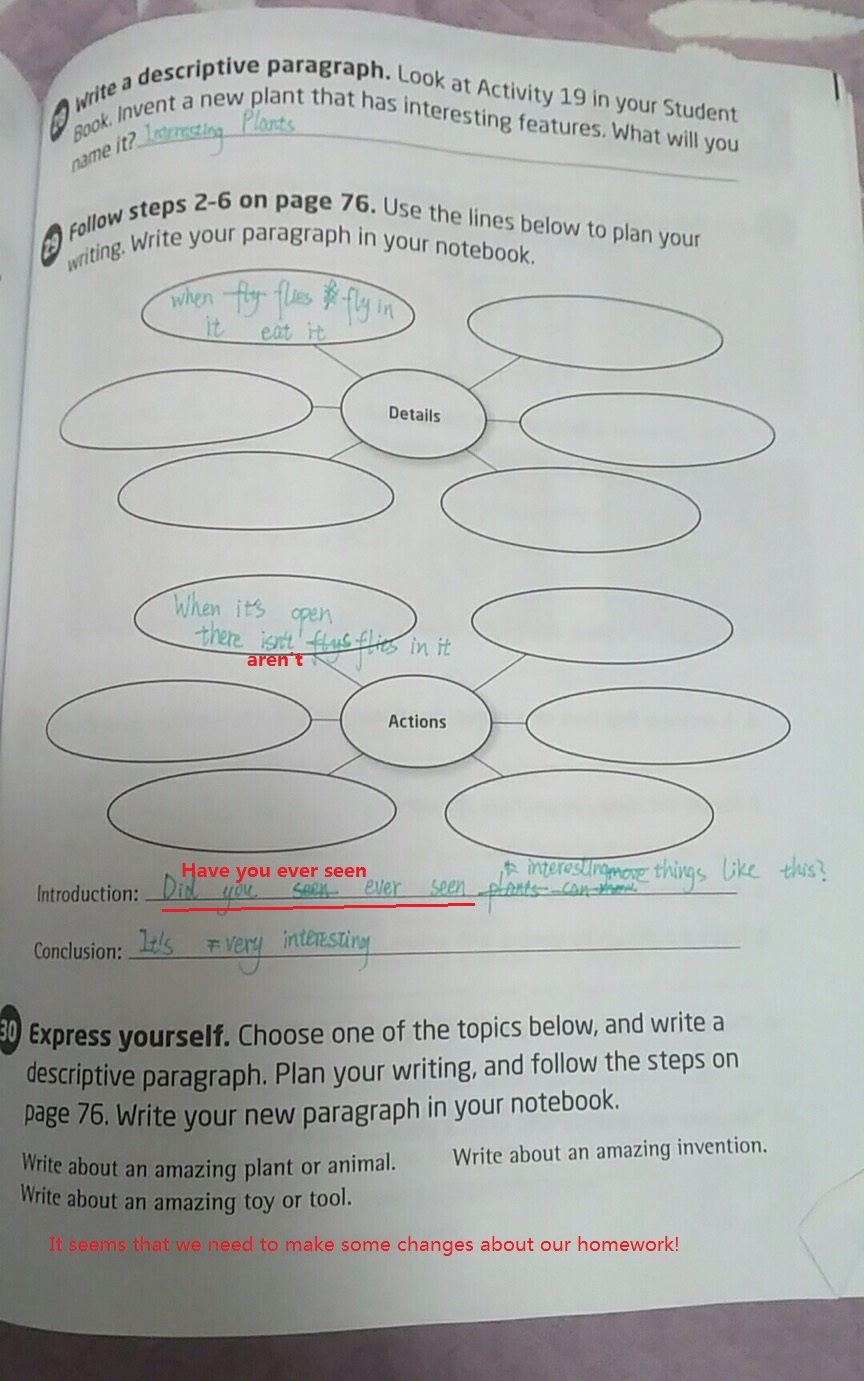 Write a descriptive paragraph. Look at Activity 19 in your Student
Book. Invent a new plant that has interesting features. What will you
name it? Interesting Plants
29 Follow steps 2-6 on page 76. Use the lines below to plan your
writing. Write your paragraph in your notebook.
when fly flies fly in
it eat it
Details
When it's open
there isn't flys flies in it
aren't
Actions
Have you ever seen
interesting move things like this?
Introduction: Did you seen ever seen plants can
Conclusion: It's very interesting
30 Express yourself. Choose one of the topics below, and write a
descriptive paragraph. Plan your writing, and follow the steps on
page 76. Write your new paragraph in your notebook.
Write about an amazing plant or animal. Write about an amazing invention.
Write about an amazing toy or tool.
It seems that we need to make some changes about our homework!